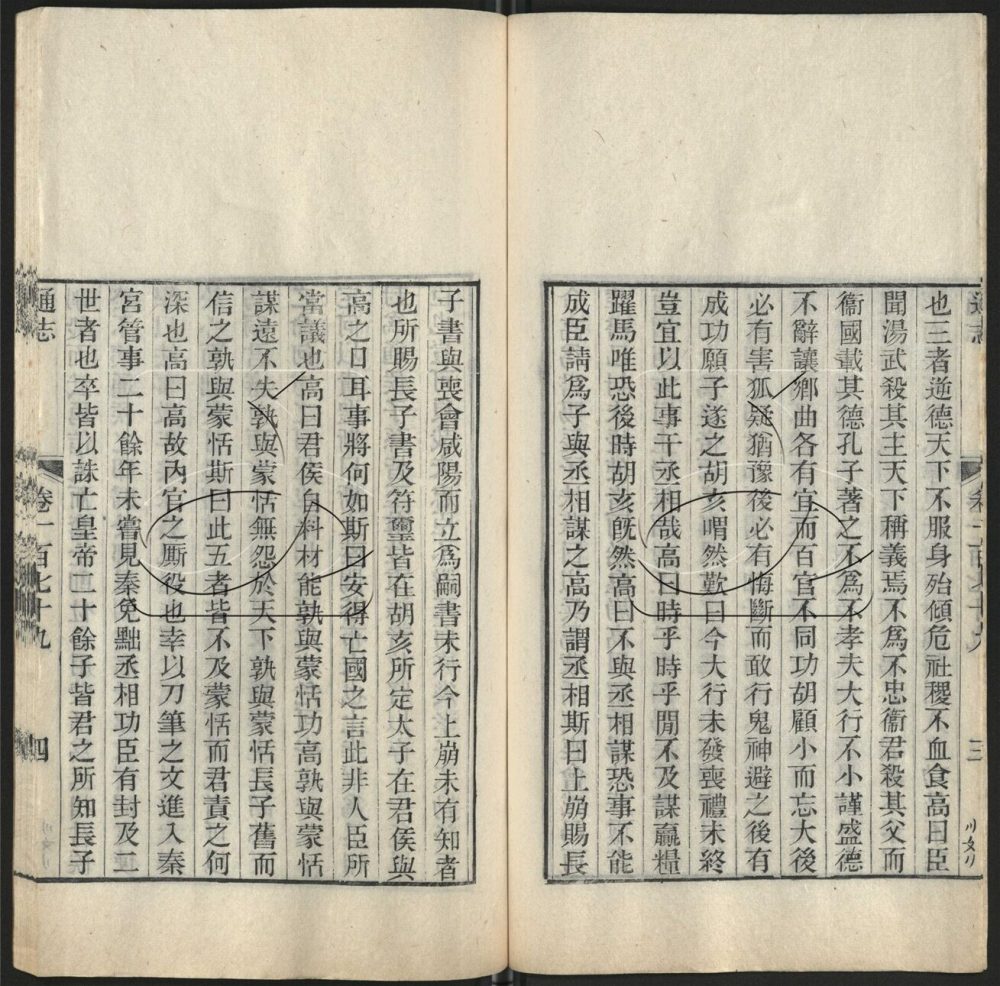 也三者逆德天下不服身殆傾危社稷不血食高曰臣
聞湯武殺其主天下稱義焉不為不忠衞君殺其父而
衞國載其德孔子著之不為不孝夫大行不小謹盛德
不辭讓鄉曲各有宜而百官不同功胡顧小而忘大後
必有害狐疑猶豫後必有悔斷而敢行鬼神避之後有
成功願子遂之胡亥喟然歎曰今大行未發喪禮未終
豈宜以此事干丞相哉高曰時乎時乎閒不及謀贏糧
躍馬唯恐後時胡亥旣然高曰不與丞相謀恐事不能
成臣請爲子與丞相謀之高乃謂丞相斯曰上崩賜長
通志
卷一百七十九
三
子書與喪會咸陽而立爲嗣書未行今上崩未有知者
也所賜長子書及符璽皆在胡亥所定太子在君侯與
高之口耳事將何如斯曰安得亡國之言此非人臣所
當議也高曰君侯自料材能孰與蒙恬功高孰與蒙恬
謀遠不失孰與蒙恬無怨於天下孰與蒙恬長子舊而
信之孰與蒙恬斯曰此五者皆不及蒙恬而君責之何
深也高曰高故內官之厮役也幸以刀筆之文進入秦
宮管事二十餘年未嘗見秦免黜丞相功臣有封及二
世者也卒皆以誅亡皇帝二十餘子皆君之所知長子
通志
卷一百七十九
四